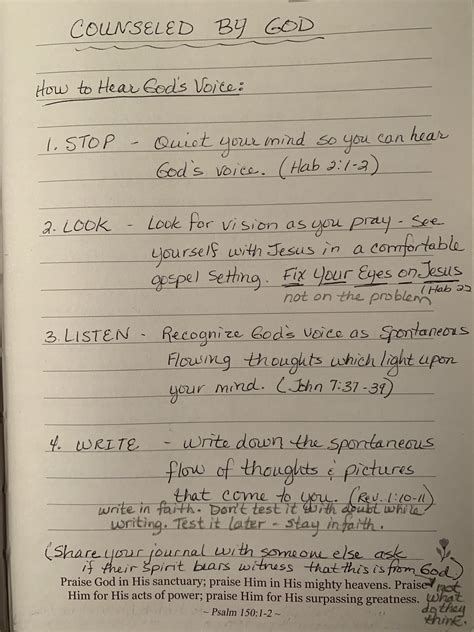 COUNSELED BY GOD
How to Hear God's Voice:
1. STOP - Quiet your mind so you can hear
God's voice. (Hab 2:1-2)
2. LOOK - Look for vision as you pray - See
yourself with Jesus in a comfortable
gospel setting. Fix Your Eyes on Jesus
not on the problem (Hab 2:2
3. LISTEN - Recognize God's voice as spontaneous
flowing thoughts which light upon
your mind. (John 7:37-39)
4. WRITE - write down the spontaneous
flow of thoughts & pictures
that come to you. (Rev. 1:10-11)
write in faith. Don't test it with doubt while
writing. Test it later - stay in faith.
(Share your journal with someone else ask
if their spirit bears witness that this is from God)
not
what
do they
think.
Praise God in His sanctuary; praise Him in His mighty heavens. Praise
Him for His acts of power; praise Him for His surpassing greatness.
~ Psalm 150:1-2 ~